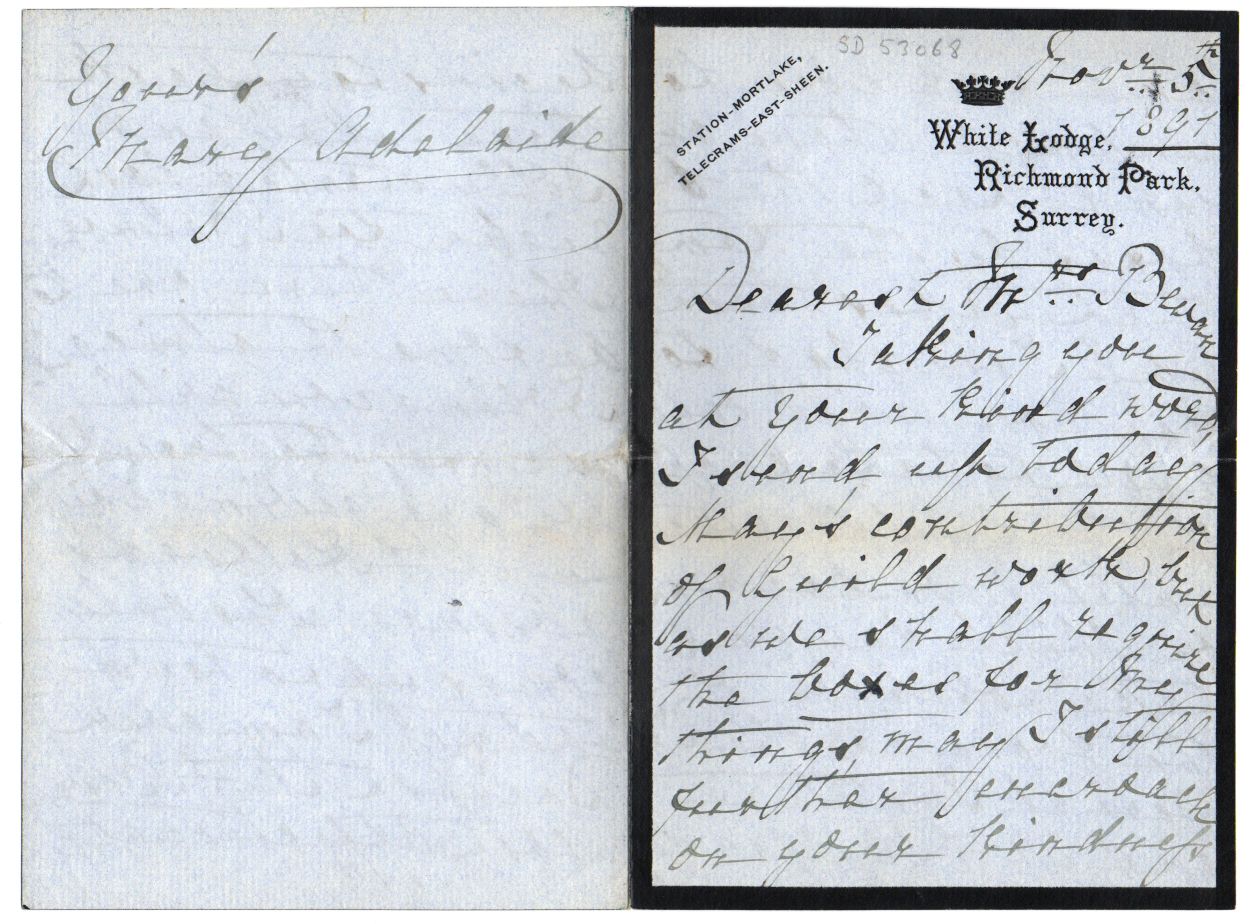 Yours
Mary Adelaide
SD 53068
STATION-MORTLAKE,
TELEGRAMS-EAST-SHEEN.
Novr 5th
1891
White Lodge,
Richmond Park.
Surrey.
Dearest Mrs Bevan
Taking you
at your kind word,
I send up today
May's contribution
of Guild work, but
as we shall require
the boxes for my
things, may I still
further encroach
on your kindness